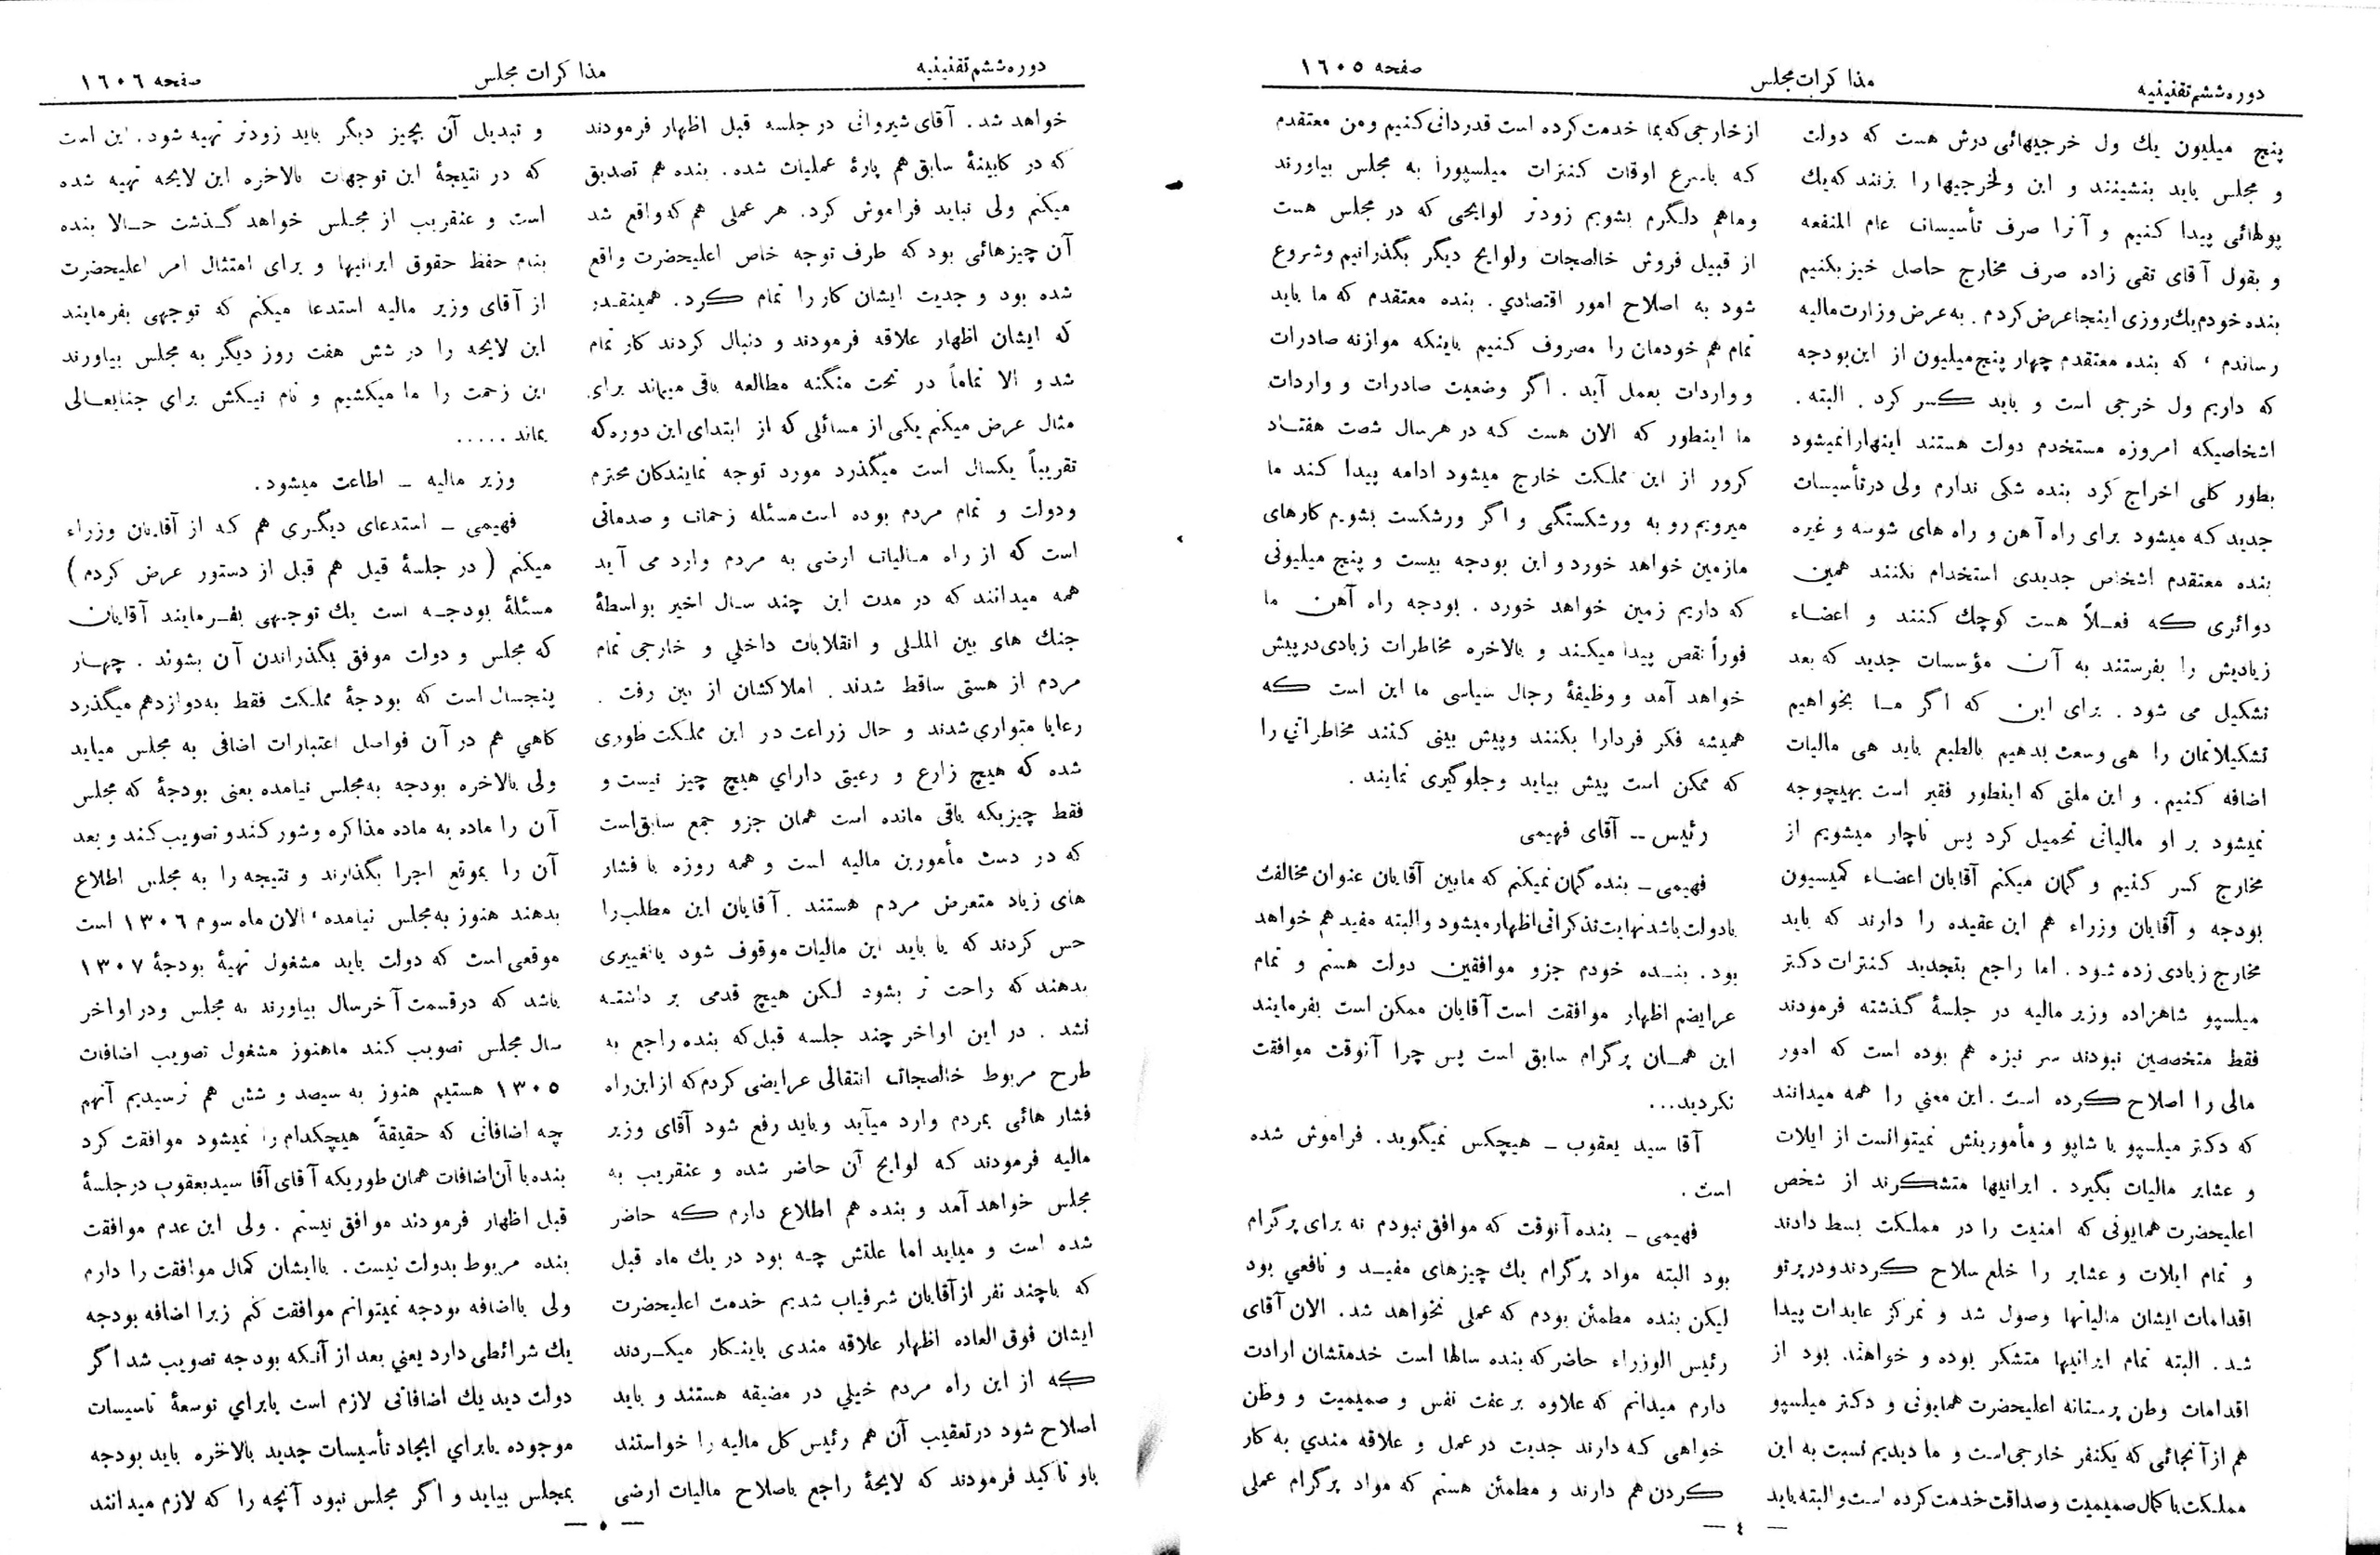 دوره ششم تقنینیه
مذاکرات مجلس
صفحه ١٦٠٥
پنج میلیون یك ول خرجیهائی درش هست که دولت
و مجلس باید بنشینند و این ولخرجیها را بزنند که یك
پولهائی پیدا کنیم و آنرا صرف تأسیسات عام المنفعه
و بقول آقای تقی زاده صرف مخارج حاصل خیز بکنیم
بنده خودم یك روزی اینجا عرض کردم . به عرض وزارت مالیه
رساندم ، که بنده معتقدم چهار پنج میلیون از این بودجه
که داریم ول خرجی است و باید کسر کرد . البته .
اشخاصیکه امروزه مستخدم دولت هستند اینهارا نمیشود
بطور کلی اخراج کرد بنده شکی ندارم ولی در تأسیسات
جدید که میشود برای راه آهن و راه های شوسه و غیره
بنده معتقدم اشخاص جدیدی استخدام نکنند همین
دوائری که فعلاً هست کوچك کنند و اعضاء
زیادیش را بفرستند به آن مؤسسات جدید که بعد
تشکیل می شود . برای این که اگر ما بخواهیم
تشکیلاتمان را هی وسعت بدهیم بالطبع باید هی مالیات
اضافه کنیم . و این ملتی که اینطور فقیر است بهیچوجه
نمیشود بر او مالیاتی تحمیل کرد پس ناچار میشویم از
مخارج کسر کنیم و گمان میکنم آقایان اعضاء کمیسیون
بودجه و آقایان وزراء هم این عقیده را دارند که باید
مخارج زیادی زده شود . اما راجع بتجدید کنترات دکتر
میلسپو شاهزاده وزیر مالیه در جلسهٔ گذشته فرمودند
فقط متخصصین نبودند سر نیزه هم بوده است که امور
مالی را اصلاح کرده است . این معنی را همه میدانند
که دکتر میلسپو با شاپو و مأمورینش نمیتوانست از ایلات
و عشایر مالیات بگیرد . ایرانیها متشکرند از شخص
اعلیحضرت همایونی که امنیت را در مملکت بسط دادند
و تمام ایلات و عشایر را خلع سلاح کردند و در پرتو
اقدامات ایشان مالیاتها وصول شد و تمرکز عایدات پیدا
شد . البته تمام ایرانیها متشکر بوده و خواهند بود از
اقدامات وطن پرستانه اعلیحضرت همایونی و دکتر میلسپو
هم از آنجائی که یکنفر خارجی است و ما دیدیم نسبت به این
مملکت با کمال صمیمیت و صداقت خدمت کرده است و البته باید
از خارجی که بما خدمت کرده است قدردانی کنیم و من معتقدم
که باسرع اوقات کنترات میلسپورا به مجلس بیاورند
و ماهم دلگرم بشویم زودتر لوایحی که در مجلس هست
از قبیل فروش خالصجات ولوایح دیگر بگذرانیم وشروع
شود به اصلاح امور اقتصادی . بنده معتقدم که ما باید
تمام هم خودمان را مصروف کنیم باینکه موازنه صادرات
و واردات بعمل آید . اگر وضعیت صادرات و واردات
ما اینطور که الان هست که در هرسال شصت هفتاد
کرور از این مملکت خارج میشود ادامه پیدا کند ما
میرویم رو به ورشکستگی و اگر ورشکست بشویم کارهای
مازمین خواهد خورد و این بودجه بیست و پنج میلیونی
که داریم زمین خواهد خورد . بودجه راه آهن ما
فوراً نقص پیدا میکند و بالاخره مخاطرات زیادی در پیش
خواهد آمد و وظیفهٔ رجال سیاسی ما این است که
همیشه فکر فردارا بکنند وپیش بینی کنند مخاطراتی را
که ممکن است پیش بیاید و جلوگیری نمایند .
رئیس -- آقای فهیمی
فهیمی - بنده گمان نمیکنم که مابین آقایان عنوان مخالفت
بادولت باشد نهایت تذکراتی اظهار میشود والبته مفید هم خواهد
بود . بنده خودم جزو موافقین دولت هستم و تمام
عرایضم اظهار موافقت است آقایان ممکن است بفرمایند
این همان پرگرام سابق است پس چرا آنوقت موافقت
نکردید...
آقا سید یعقوب - هیچکس نمیگوید . فراموش شده
است .
فهیمی - بنده آنوقت که موافق نبودم نه برای پرگرام
بود البته مواد پرگرام یك چیزهای مفید و نافعی بود
لیکن بنده مطمئن بودم که عملی نخواهد شد . الان آقای
رئیس الوزراء حاضر که بنده سالها است خدمتشان ارادت
دارم میدانم که علاوه بر عفت نفس و صمیمیت و وطن
خواهی که دارند جدیت در عمل و علاقه مندی به کار
کردن هم دارند و مطمئن هستم که مواد پرگرام عملی
— ٤ —
دوره ششم تقنینیه
مذاکرات مجلس
صفحه ١٦٠٦
خواهد شد . آقای شیروانی در جلسه قبل اظهار فرمودند
که در کابینهٔ سابق هم پارهٔ عملیات شده . بنده هم تصدیق
میکنم ولی نباید فراموش کرد . هر عملی هم که واقع شد
آن چیزهائی بود که طرف توجه خاص اعلیحضرت واقع
شده بود و جدیت ایشان کار را تمام کرد . همینقدر
که ایشان اظهار علاقه فرمودند و دنبال کردند کار تمام
شد و الا تماماً در تحت منگنه مطالعه باقی میماند برای
مثال عرض میکنم یکی از مسائلی که از ابتدای این دوره که
تقریباً یکسال است میگذرد مورد توجه نمایندکان محترم
ودولت و تمام مردم بوده است مسئله زحمات و صدماتی
است که از راه مالیات ارضی به مردم وارد می آید
همه میدانند که در مدت این چند سال اخیر بواسطهٔ
جنك های بین المللی و انقلابات داخلی و خارجی تمام
مردم از هستی ساقط شدند . املاکشان از بین رفت .
رعایا متواری شدند و حال زراعت در این مملکت طوری
شده که هیچ زارع و رعیتی دارای هیچ چیز نیست و
فقط چیزیکه باقی مانده است همان جزو جمع سابق است
که در دست مأمورین مالیه است و همه روزه با فشار
های زیاد متعرض مردم هستند . آقایان این مطلب را
حس کردند که یا باید این مالیات موقوف شود یا تغییری
بدهند که راحت تر بشود لکن هیچ قدمی بر داشته
نشد . در این اواخر چند جلسه قبل که بنده راجع به
طرح مربوط خالصجات انتقالی عرایضی کردم که از این راه
فشار هائی بمردم وارد میآید و باید رفع شود آقای وزیر
مالیه فرمودند که لوایح آن حاضر شده و عنقریب به
مجلس خواهد آمد و بنده هم اطلاع دارم که حاضر
شده است و میاید اما علتش چه بود در یك ماه قبل
که باچند نفر از آقایان شرفیاب شدیم خدمت اعلیحضرت
ایشان فوق العاده اظهار علاقه مندی باینکار میکردند
که از این راه مردم خیلی در مضیقه هستند و باید
اصلاح شود در تعقیب آن هم رئیس کل مالیه را خواستند
باو تاکید فرمودند که لایحهٔ راجع باصلاح مالیات ارضی
و تبدیل آن بچیز دیگر باید زودتر تهیه شود . این است
که در نتیجهٔ این توجهات بالاخره این لایحه تهیه شده
است و عنقریب از مجلس خواهد گذشت حالا بنده
بنام حفظ حقوق ایرانیها و برای امتثال امر اعلیحضرت
از آقای وزیر مالیه استدعا میکنم که توجهی بفرمایند
این لایحه را در شش هفت روز دیگر به مجلس بیاورند
این زحمت را ما میکشیم و نام نیکش برای جنابعالی
بماند .....
وزیر مالیه - اطاعت میشود .
فهیمی - استدعای دیگری هم که از آقایان وزراء
میکنم ( در جلسهٔ قبل هم قبل از دستور عرض کردم )
مسئلهٔ بودجه است یك توجهی بفرمایند آقایان
که مجلس و دولت موفق بگذراندن آن بشوند . چهار
پنجسال است که بودجهٔ مملکت فقط به دوازدهم میگذرد
کاهی هم در آن فواصل اعتبارات اضافی به مجلس میاید
ولی بالاخره بودجه به مجلس نیامده یعنی بودجهٔ که مجلس
آن را ماده به ماده مذاکره وشور کند و تصویب کند و بعد
آن را بموقع اجرا بگذارند و نتیجه را به مجلس اطلاع
بدهند هنوز به مجلس نیامده ، الان ماه سوم ١٣٠٦ است
موقعی است که دولت باید مشغول تهیهٔ بودجهٔ ١٣٠٧
باشد که در قسمت آخر سال بیاورند به مجلس و در اواخر
سال مجلس تصویب کند ماهنوز مشغول تصویب اضافات
١٣٠٥ هستیم هنوز به سیصد و شش هم نرسیدیم آنهم
چه اضافاتی که حقیقةً هیچکدام را نمیشود موافقت کرد
بنده با آن اضافات همان طوریکه آقای آقا سید یعقوب در جلسهٔ
قبل اظهار فرمودند موافق نیستم . ولی این عدم موافقت
بنده مربوط بدولت نیست . باایشان کمال موافقت را دارم
ولی بااضافه بودجه نمیتوانم موافقت کنم زیرا اضافه بودجه
یك شرائطی دارد یعنی بعد از آنکه بودجه تصویب شد اگر
دولت دید یك اضافاتی لازم است یابرای توسعهٔ تاسیسات
موجوده یابرای ایجاد تأسیسات جدید بالاخره باید بودجه
بمجلس بیاید و اگر مجلس نبود آنچه را که لازم میدانند
— ٥ —